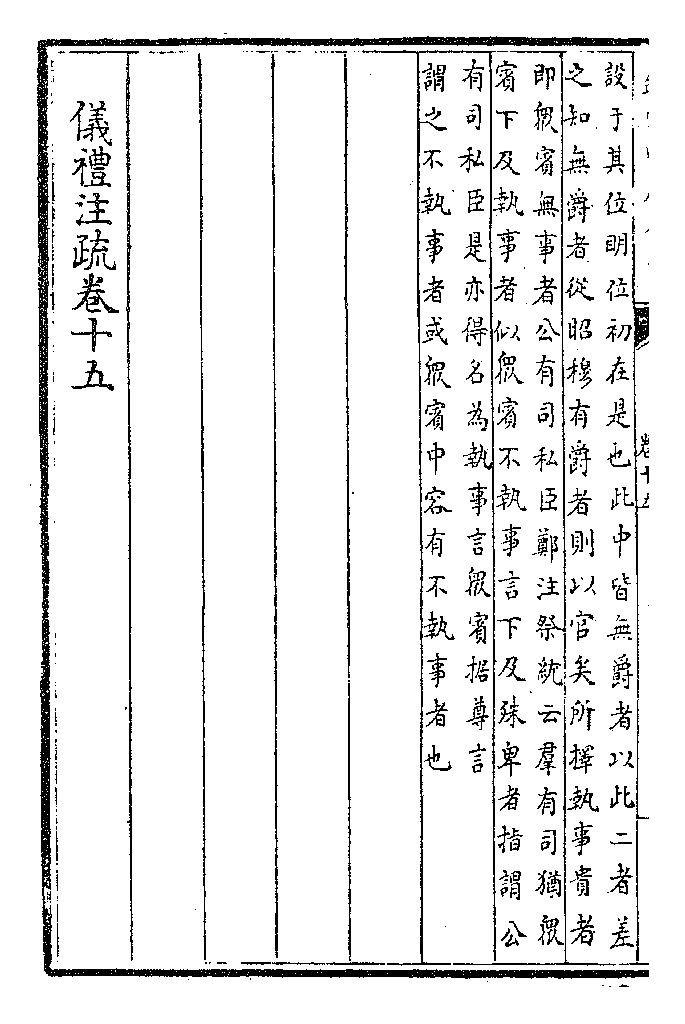 設于其位明位初在是也此中皆無爵者以此二者差
之知無爵者從昭穆有爵者則以官矣所擇執事貴者
即衆賓無事者公有司私臣鄭注祭統云羣有司猶衆
賓下及執事者似衆賓不執事言下及殊卑者指謂公
有司私臣是亦得名為執事言衆賓据尊言
謂之不執事者或衆賓中容有不執事者也
儀禮注疏卷十五